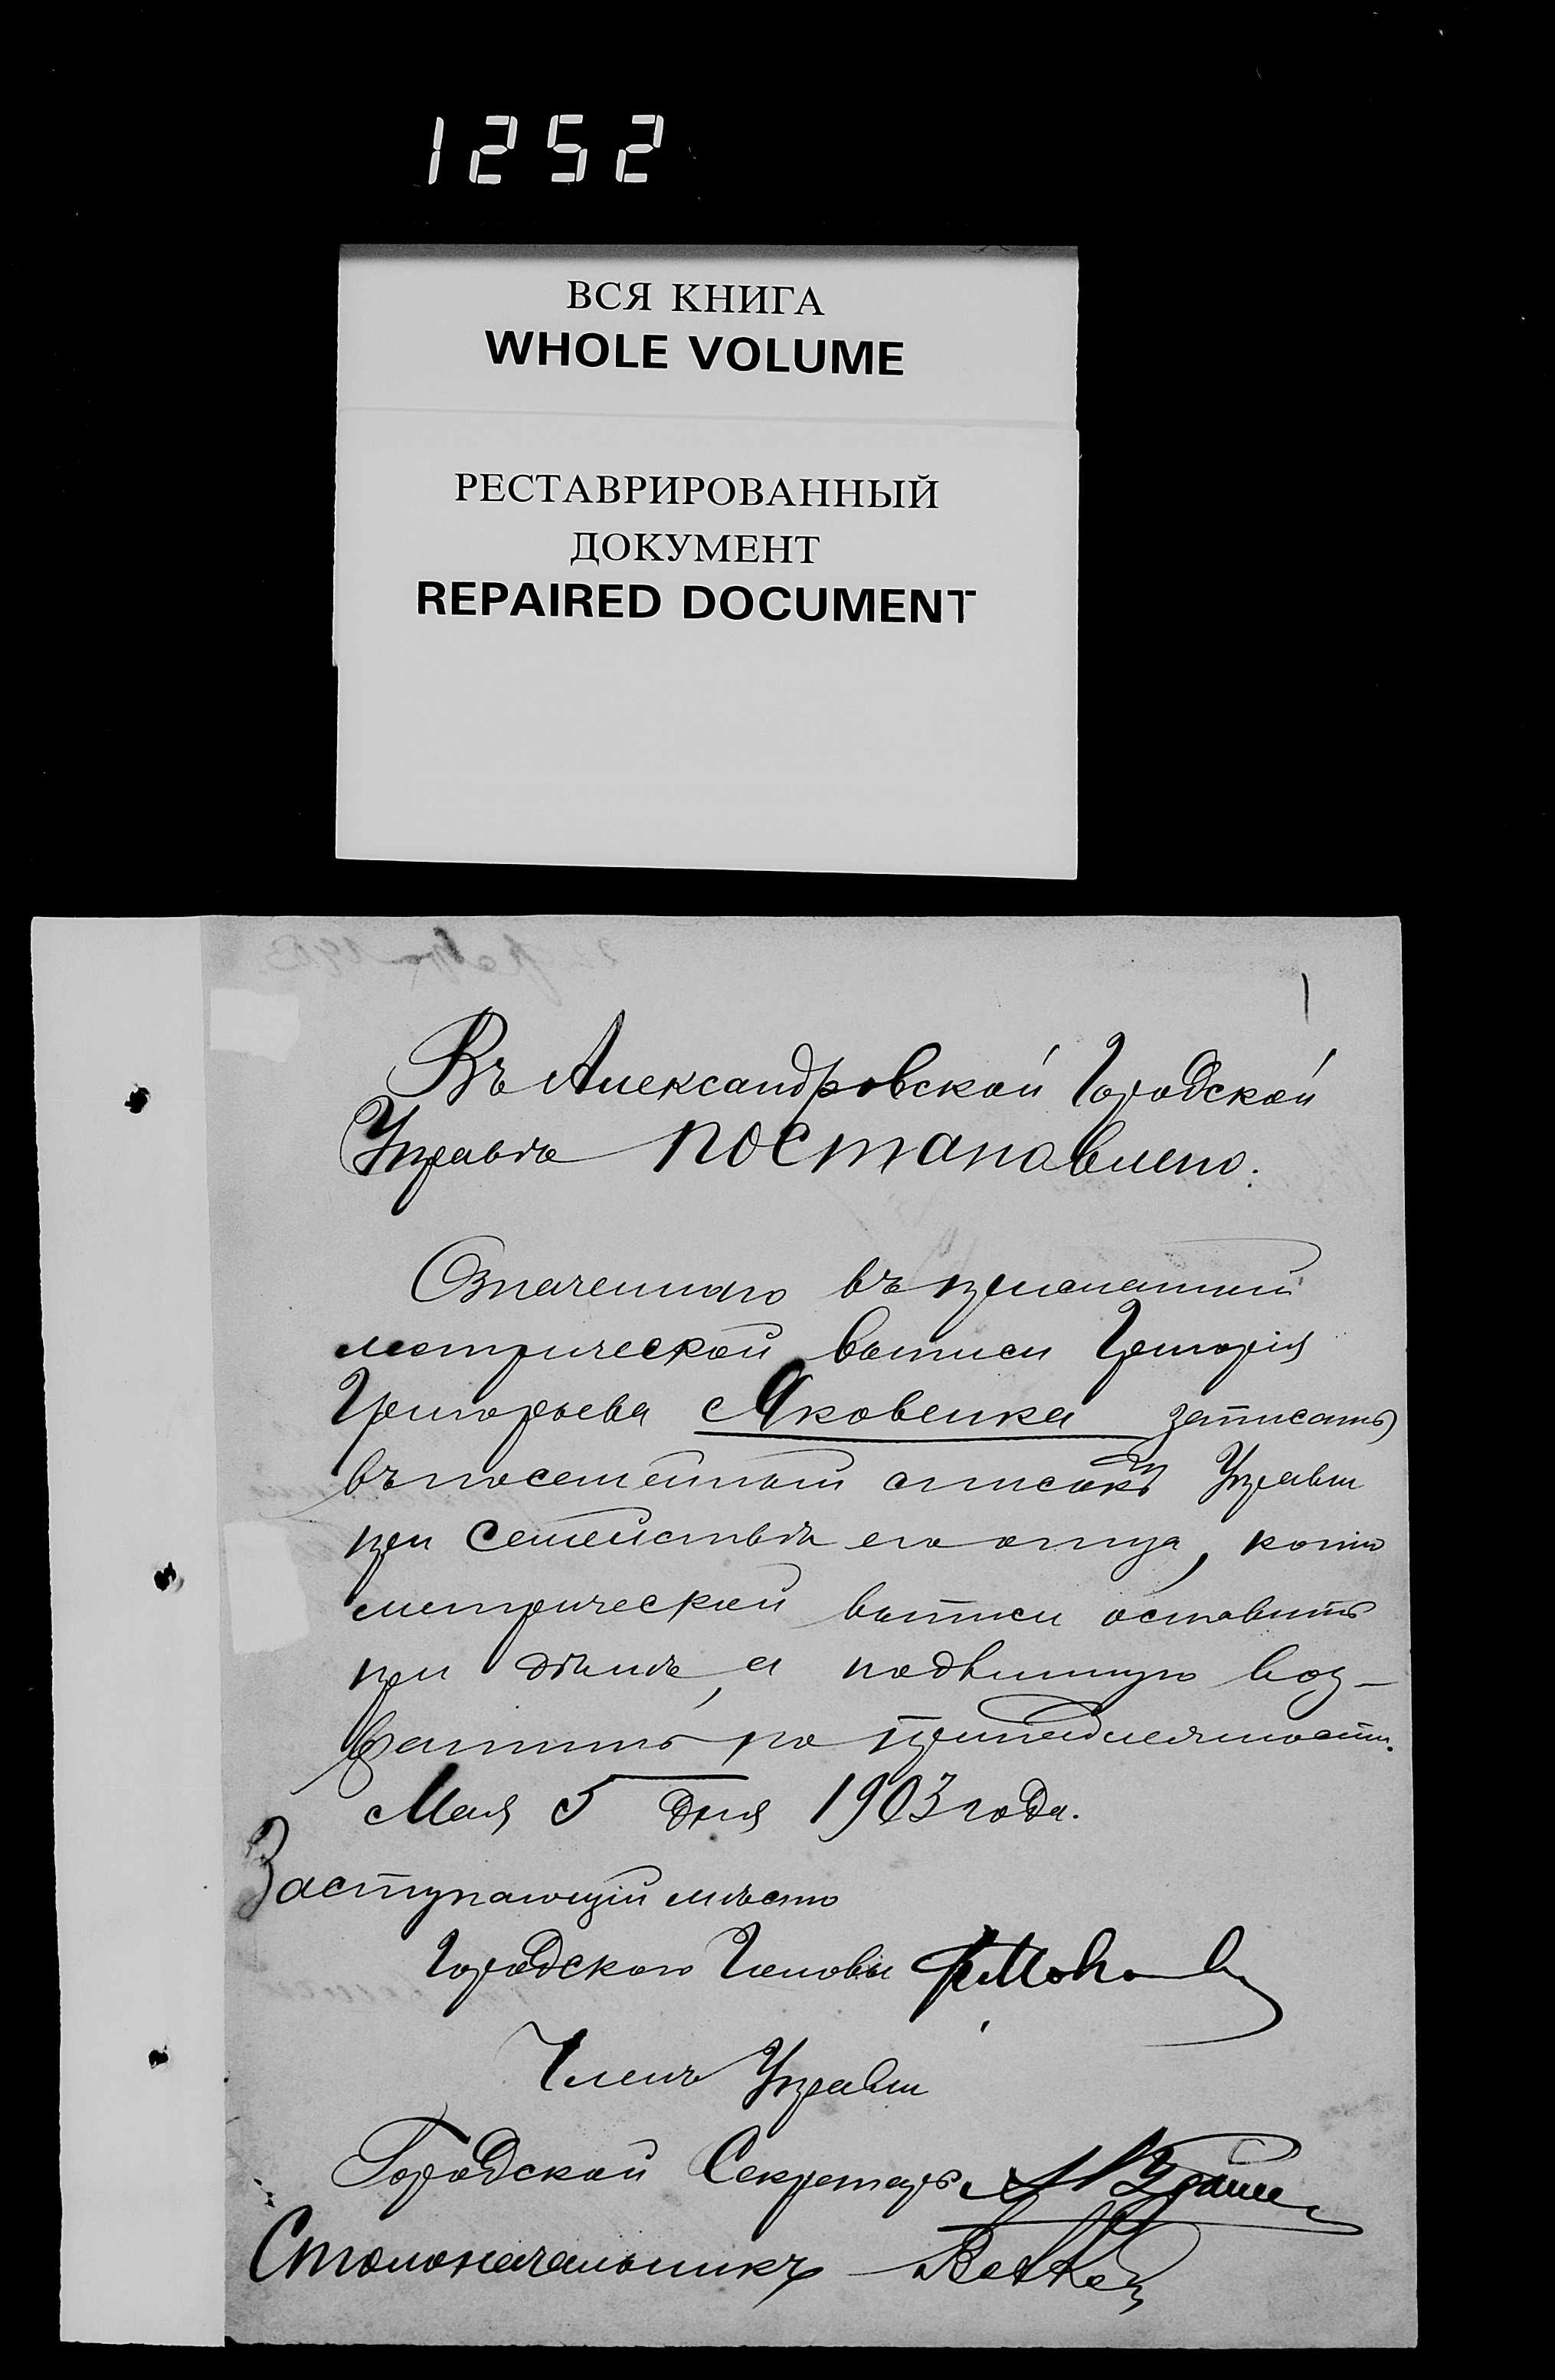 1252
ВСЯ КНИГА
WHOLE VOLUME
РЕСТАВРИРОВАННЫЙ
ДОКУМЕНТ
REPAIRED DOCUMENT
1
Въ Александровской Городской
Управѣ постановлено:
Означеннаго въ
метрической выписи Григорія
Григорьева Яковенка записать
въ посемейный списокъ Управы
при семействѣ его отца, копію
метрической выписи оставить
при дѣлѣ, а подлинную воз-
вратить по принадлежности.
Мая 5 дня 1903 года.
Заступающій мѣсто
Городского Головы
Членъ Управы
Городской Секретарь
Столоначальникъ